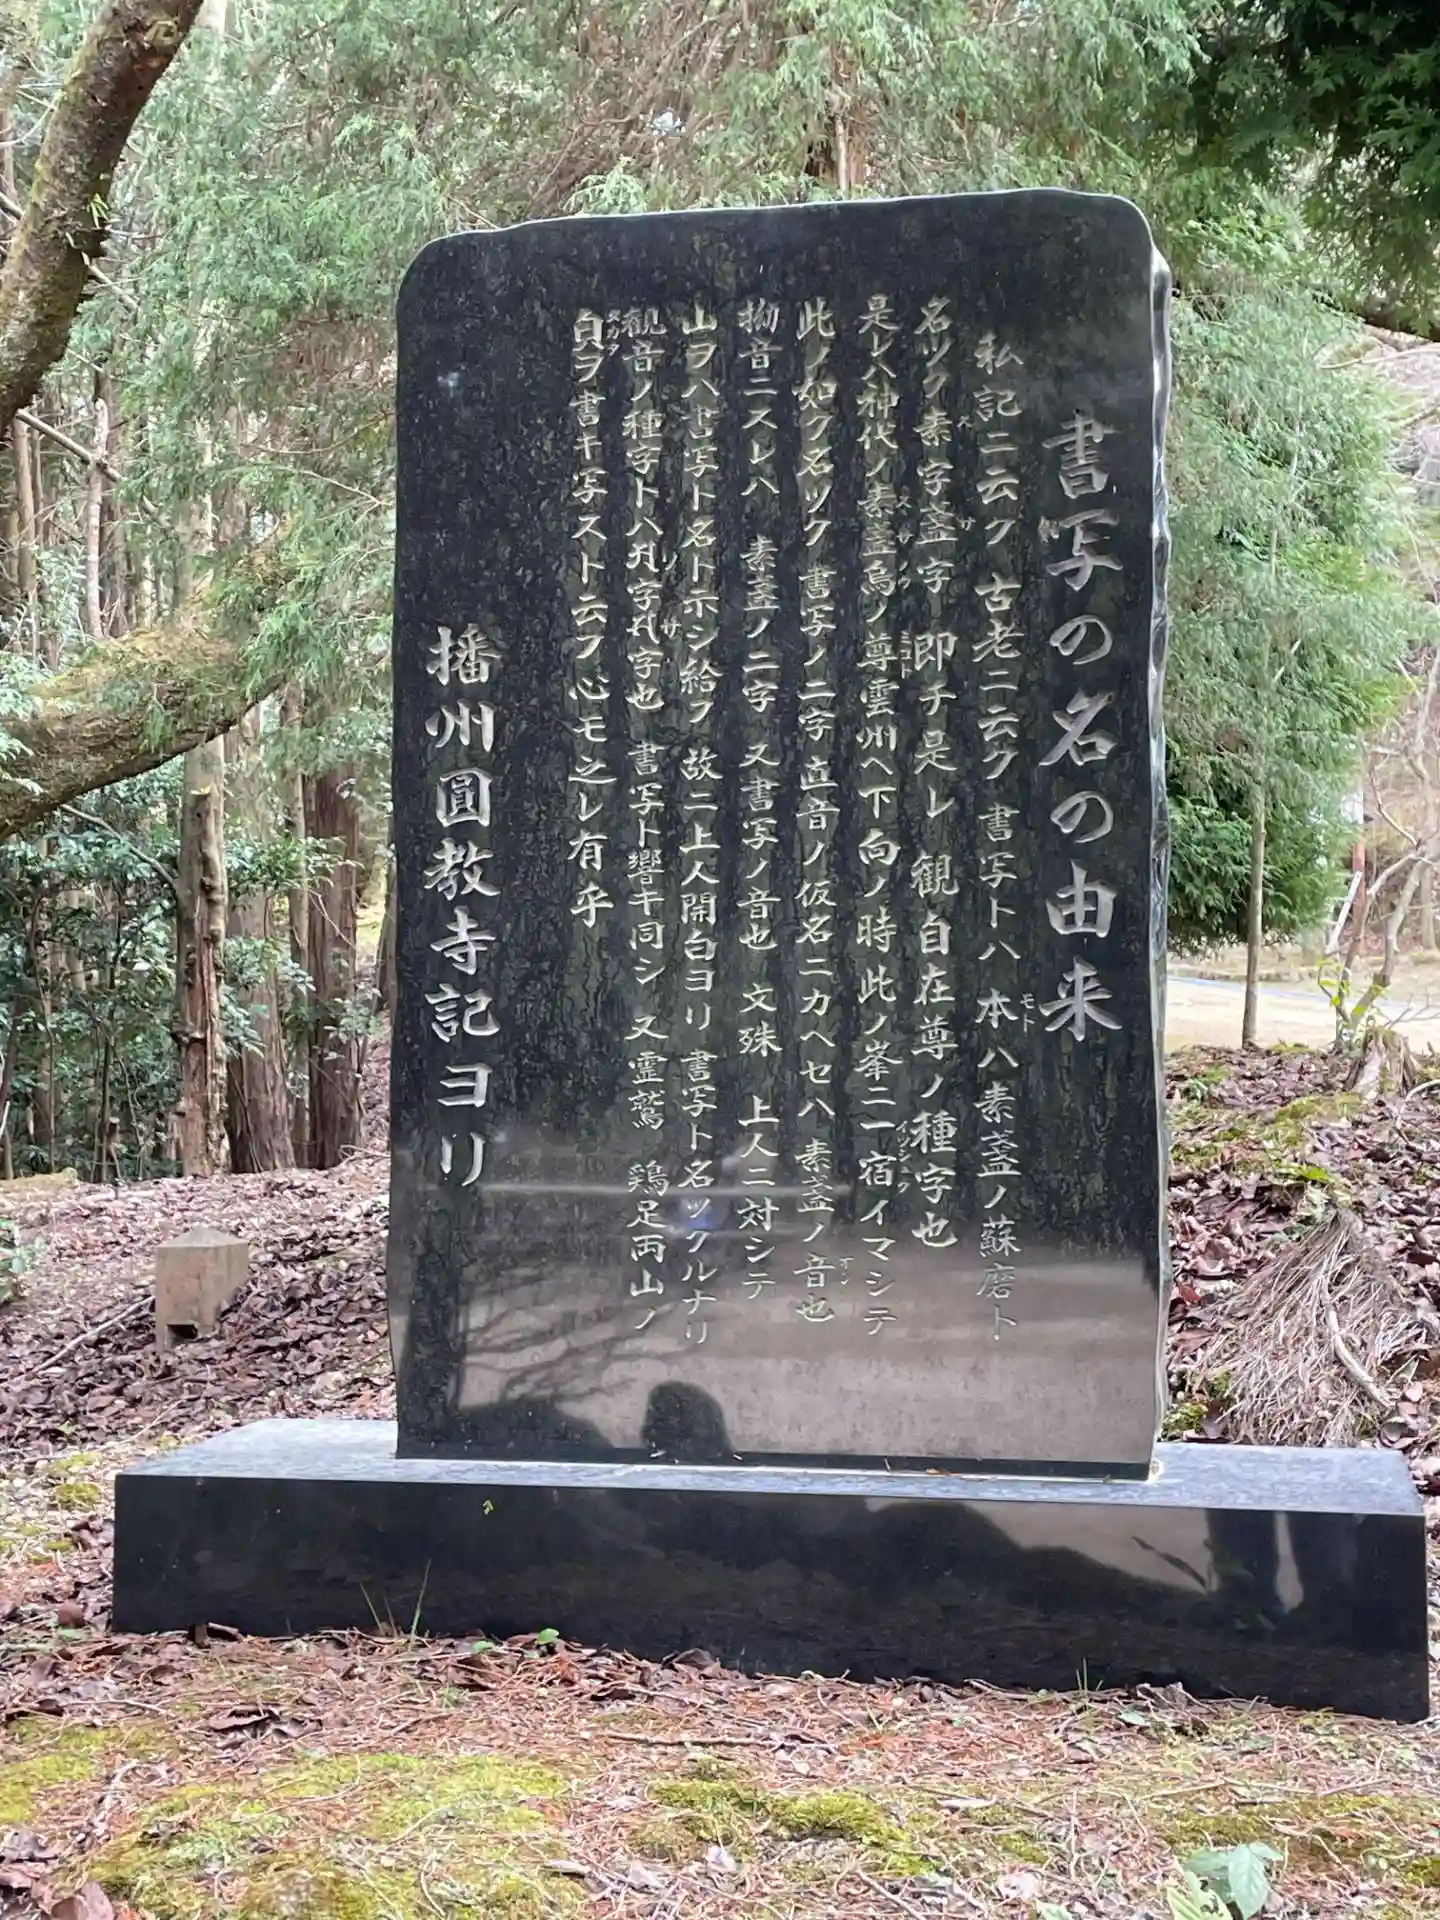 書写の名の由来
私記ニ云ク 古老ニ云ク 書写トハ本ハ素盞ノ蘇磨ト
モト
名ツク素字盞字 即チ是レ 観自在尊ノ種字也
ス サ
是レハ神代ノ素盞烏ノ尊雲州ヘ下向ノ時此ノ峯ニ一宿イマシテ
スサノウ ミコト
此ノ如ク名ツク 書写ノ二字直音ノ仮名ニカヘセハ 素盞ノ音也
オン
拗音ニスレハ 素盞ノ二字 又書写ノ音也 文殊 上人ニ対シテ
山ヲハ書写ト名ト示シ給フ 故ニ上人開白ヨリ 書写ト名ツクルナリ
観音ノ種字トハ 字 字也 書写ト響キ同シ 又霊鷲 鶏足両山ノ
サ
白ヲ書キ写スト云フ心モ之レ有乎
播州圓教寺記ヨリ